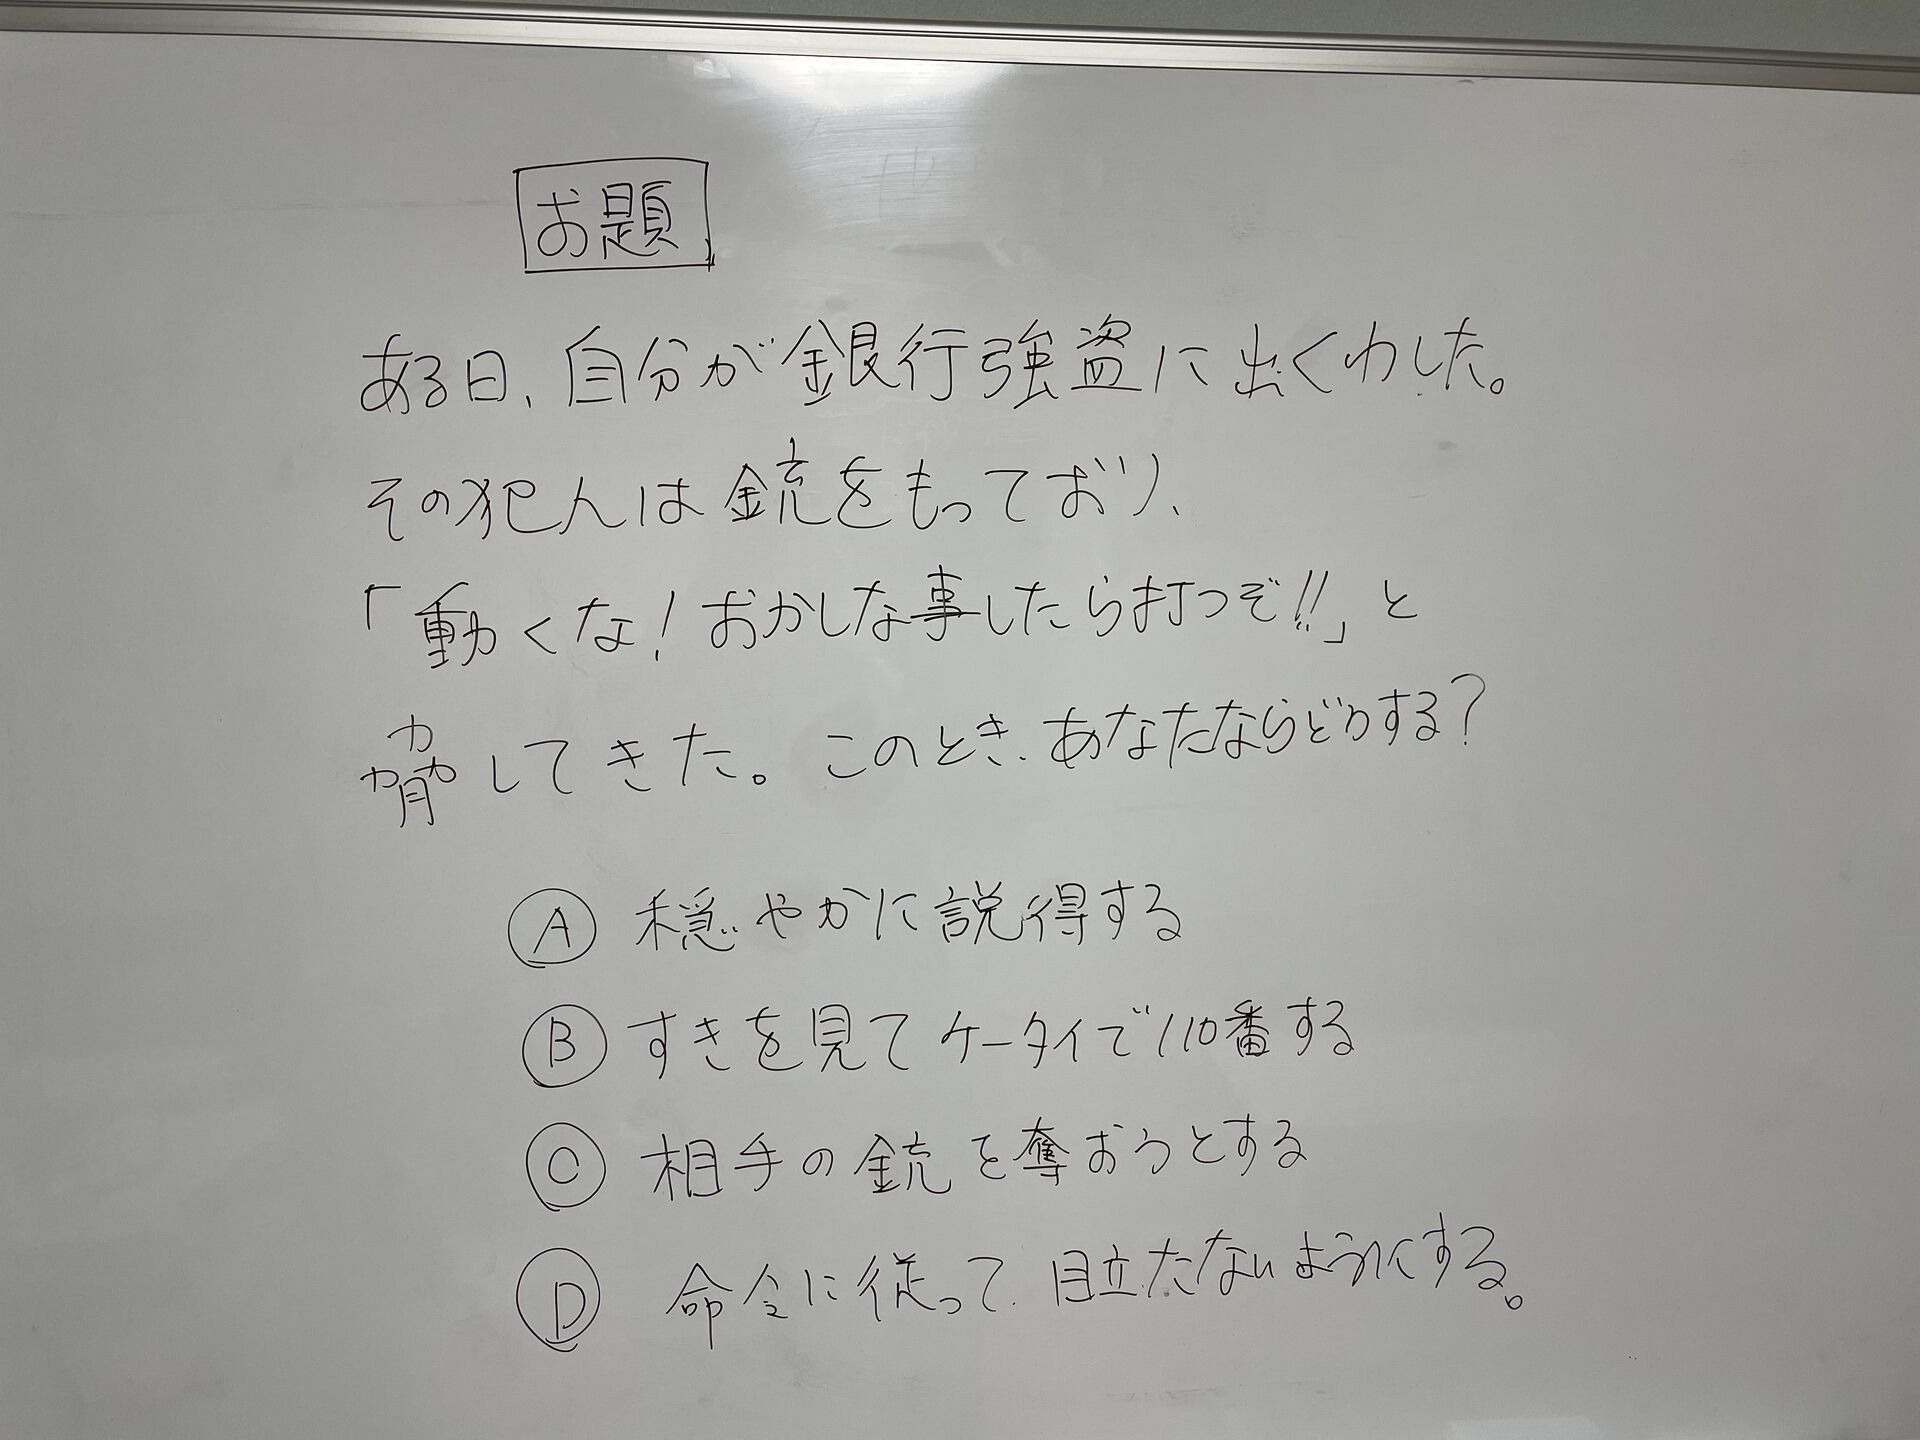 お題
ある日、自分が銀行強盗に出くわした。
その犯人は銃をもっており、
「動くな!おかしな事したら打つぞ!!」と
脅してきた。このとき、あなたならどうする?
Ⓐ 穏やかに説得する
Ⓑ すきを見てケータイで110番する
Ⓒ 相手の銃を奪おうとする
Ⓓ 命令に従って、目立たないようにする。